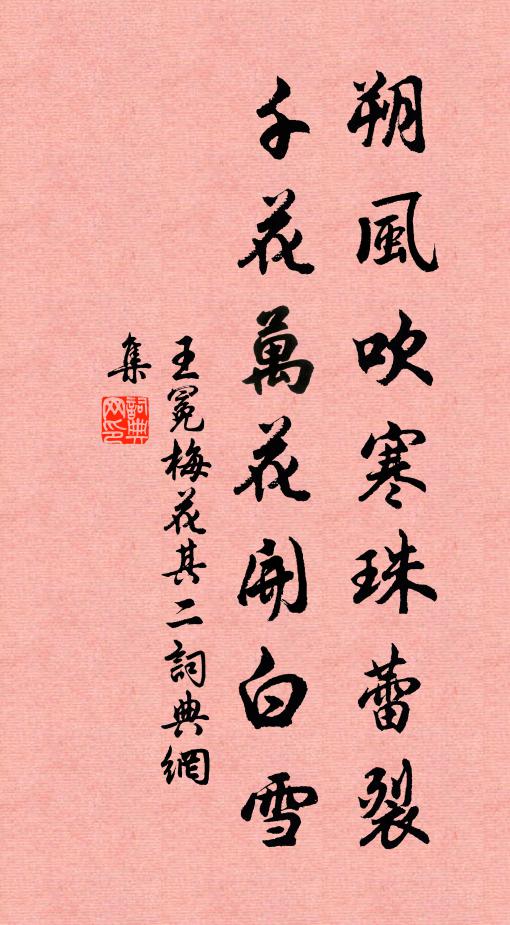 朔風吹寒珠蕾裂
千花萬花開白雪
王冕梅花其二詞典網
集
詞典網印